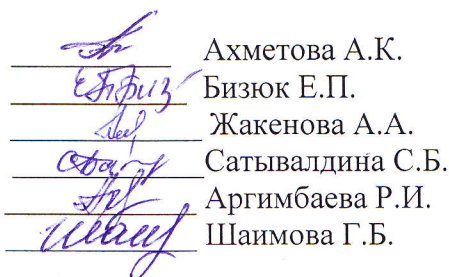 Ахметова А.К.
Бизюк Е.П.
Жакенова А.А.
Сатывалдина С.Б.
Аргимбаева Р.И.
Шаимова Г.Б.